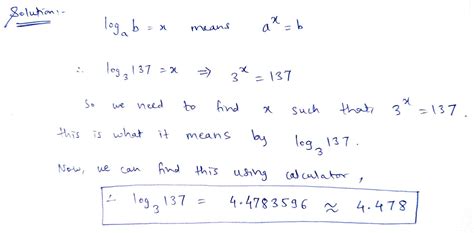 Solution:-
log_a b = x means a^x = b
∴ log_3 137 = x ⇒ 3^x = 137
So we need to find x such that, 3^x = 137.
this is what it means by log_3 137.
Now, we can find this using calculator,
∴ log_3 137 = 4.4783596 ≈ 4.478